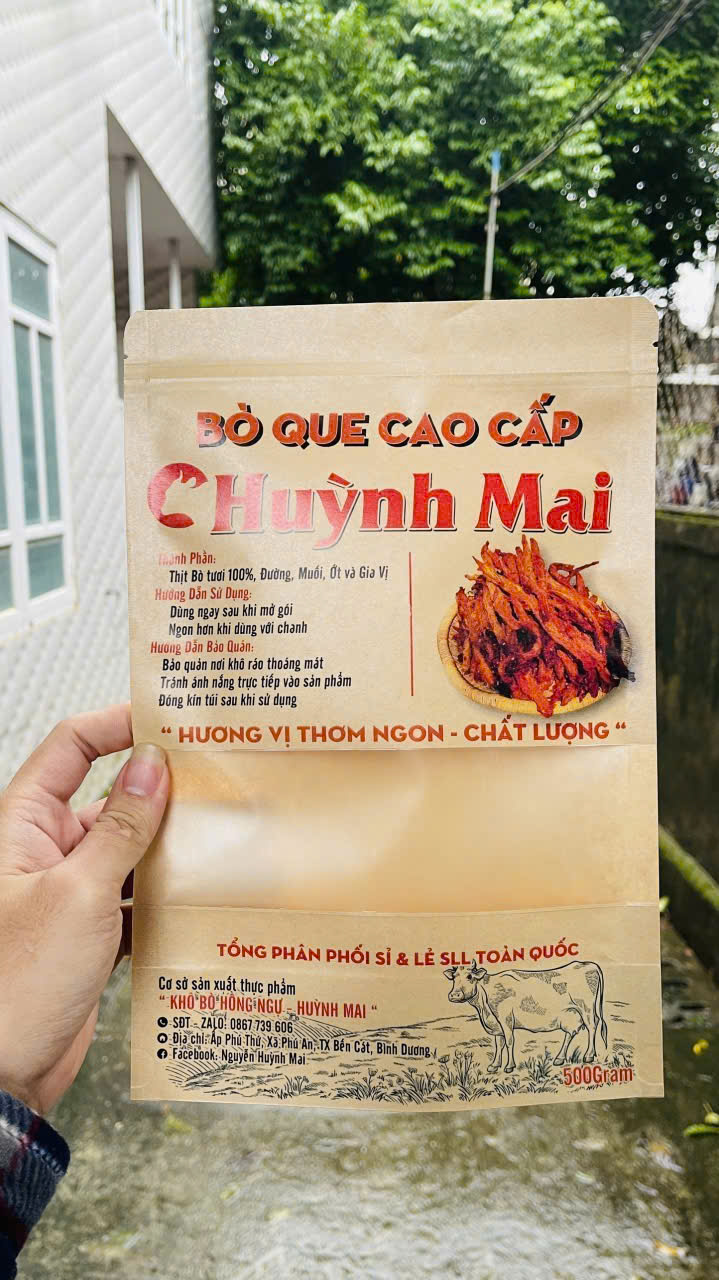 BÒ QUE CAO CẤP
Huỳnh Mai
Thành Phần:
Thịt Bò tươi 100%, Đường, Muối, Ớt và Gia Vị
Hướng Dẫn Sử Dụng:
Dùng ngay sau khi mở gói
Ngon hơn khi dùng với chanh
Hướng Dẫn Bảo Quản:
Bảo quản nơi khô ráo thoáng mát
Tránh ánh nắng trực tiếp vào sản phẩm
Đóng kín túi sau khi sử dụng
“ HƯƠNG VỊ THƠM NGON - CHẤT LƯỢNG “
TỔNG PHÂN PHỐI SỈ & LẺ SLL TOÀN QUỐC
Cơ sở sản xuất thực phẩm
“ KHÔ BÒ HỒNG NGỰ - HUỲNH MAI “
SĐT - ZALO: 0867 739 606
Địa chỉ: Ấp Phú Thứ, Xã Phú An, TX Bến Cát, Bình Dương
Facebook: Nguyễn Huỳnh Mai
500Gram